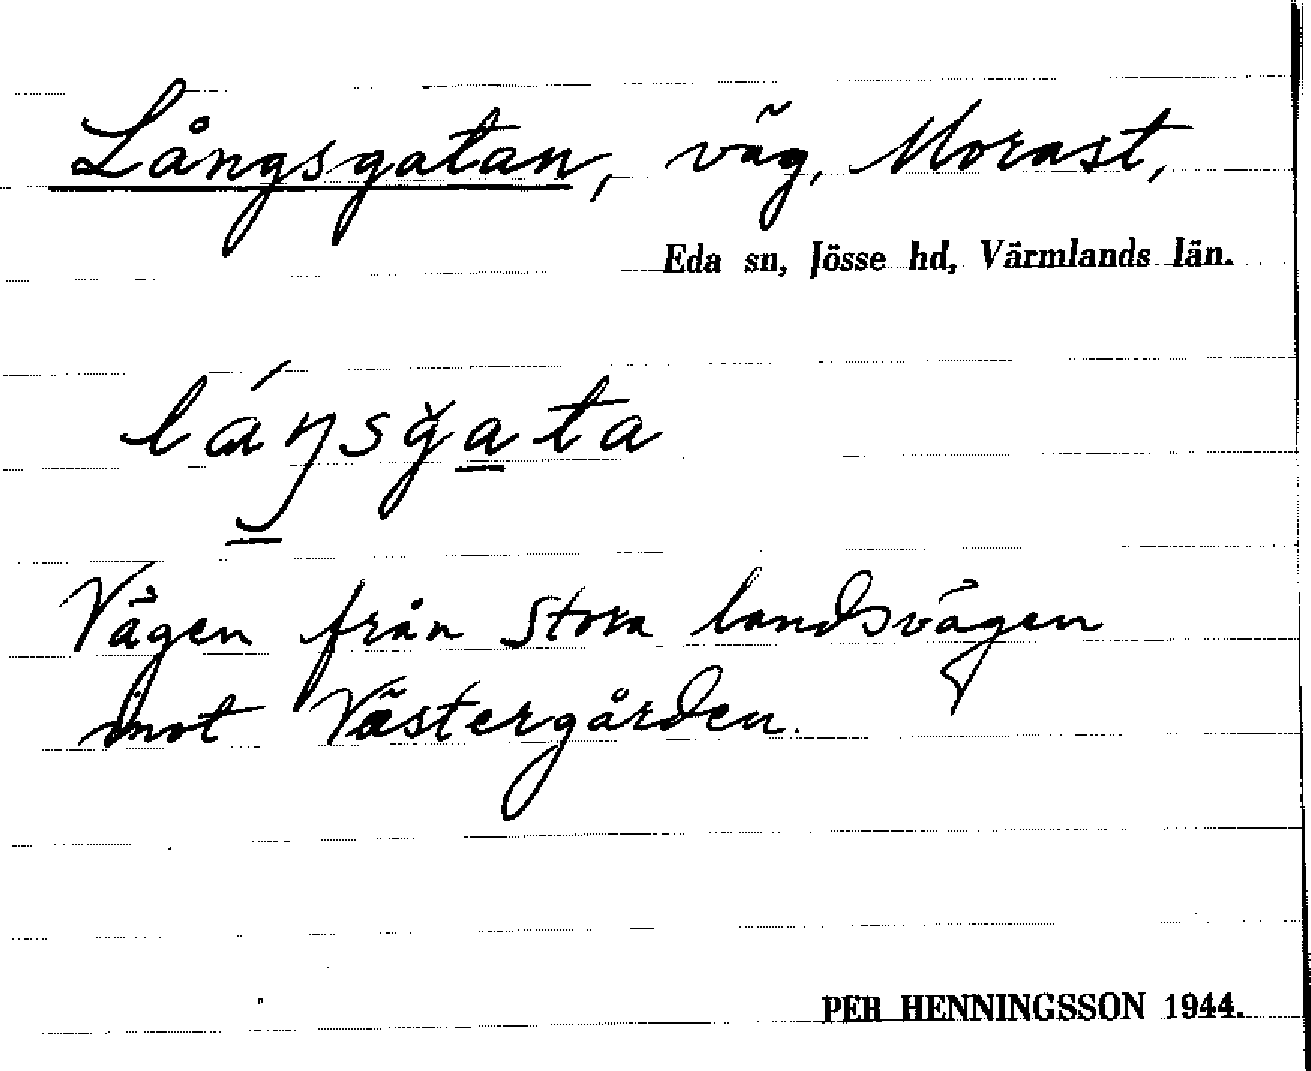 Långsgatan, väg, Morast,
Eda sn, Jösse hd, Värmlands län.
láŋsg̀ata
Vägen från Stora landsvägen
mot Västergården.
PER HENNINGSSON 1944.